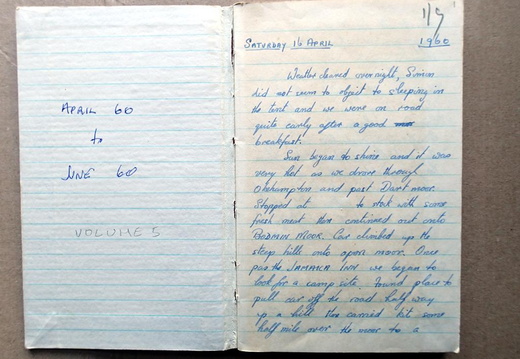 APRIL 60
to
JUNE 60
VOLUME 5
1/9
SATURDAY 16 APRIL 1960
Weather cleared overnight, Simon
did not seem to object to sleeping in
the tent and we were on road
quite early after a good
breakfast.
Sun began to shine and it was
very hot as we drove through
Okehampton and past Dartmoor.
Stopped at to stock with some
fresh meat then continued out onto
BODMIN MOOR. Car climbed up the
steep hills onto open moor. Once
past the JAMAICA INN we began to
look for a camp site. Found place to
pull car off the road half way
up a hill then carried kit some
half mile over the moor to a